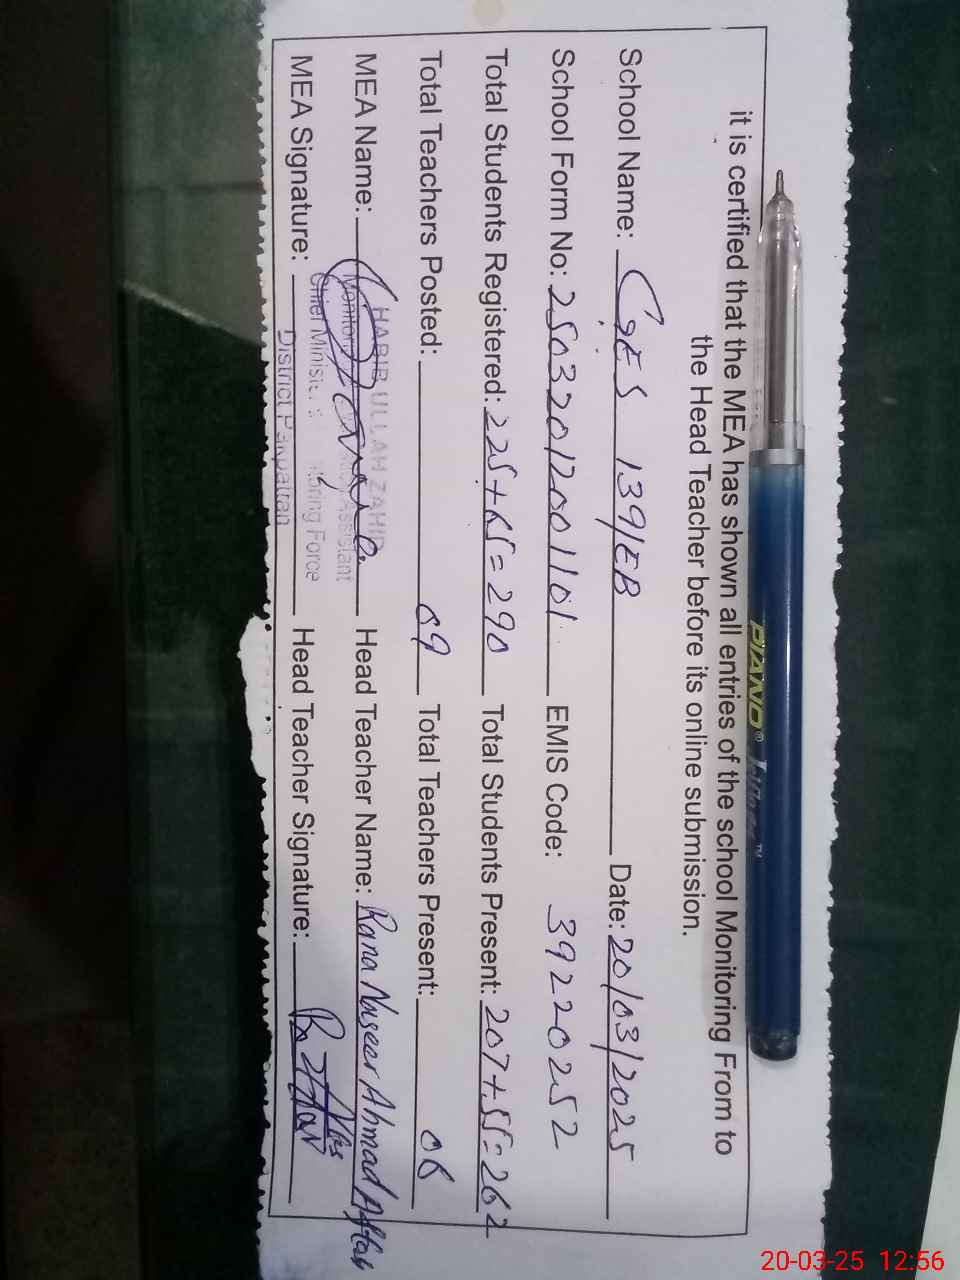 it is certified that the MEA has shown all entries of the school Monitoring From to
the Head Teacher before its online submission.
School Name: GES 139/EB Date: 20/03/2025
School Form No: 25032012001101 EMIS Code: 39220252
Total Students Registered: 225+65=290 Total Students Present: 207+55=262
Total Teachers Posted: 09 Total Teachers Present: 08
MEA Name: Head Teacher Name: Rana Naseer Ahmad
HABIB ULLAH ZAHID
Monitoring Assistant
Chief Minister's Monitoring Force
District Pakpattan
MEA Signature: Head Teacher Signature:
PIANO®
20-03-25 12:56